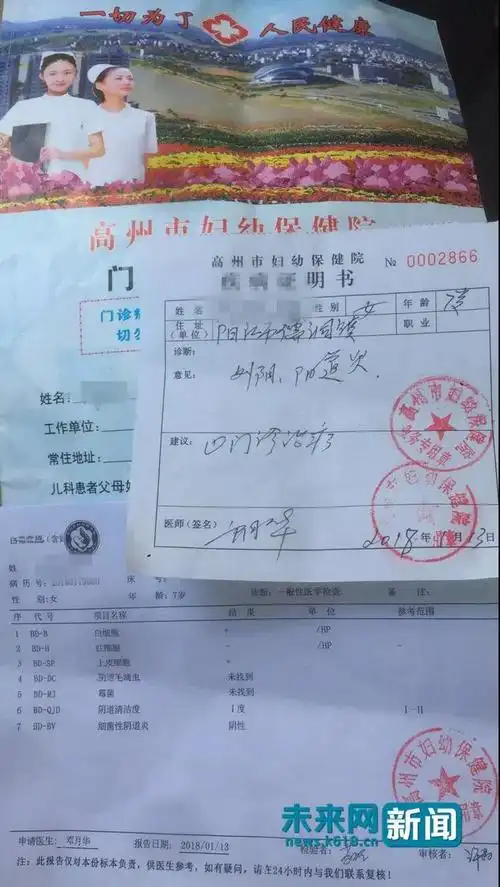 一切为了 人民健康
高州市妇幼保健院
门
门诊
切勿
姓名:
工作单位:
常住地址:
儿科患者父母
高州市妇幼保健院
№ 0002866
疾病证明书
姓名 性别 女 年龄
住址(单位) 职业
诊断:
意见:
建议: 门诊治疗
医师(签名)
2018年1月13日
高州市妇幼保健院
高州市妇幼保健院
病历号:
性 别:女 年 龄:7岁 诊断:一般性医学检查 备 注:
序 代号 项目名称 结果 单位 参考范围
1 BD-B 白细胞 /HP
2 BD-H 红细胞 - /HP -
3 BD-SP 上皮细胞
4 BD-DC 阴道毛滴虫 未找到
5 BD-MJ 霉菌 未找到
6 BD-QJD 阴道清洁度 I度 I-II
7 BD-BV 细菌性阴道炎 阴性
高州市妇幼保健院
未来网 新闻
news.k618.cn
申请医生: 邓月华 报告日期: 2018/01/13 检验者: 审核者:
注: 此报告仅对本份标本负责,供医生参考,如有疑问,请在24小时内与我们联系复查!